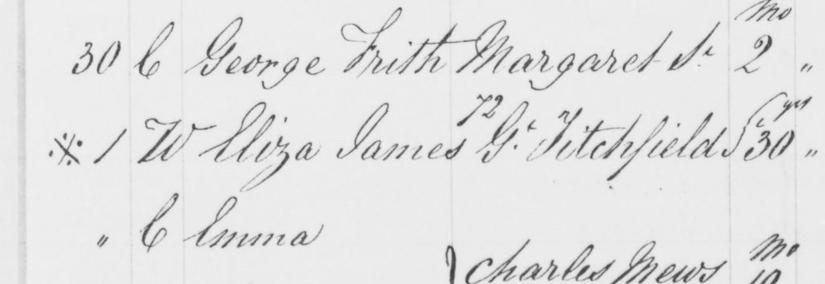 30 C George Frith Margaret St 2 Mo "
※ 1 W Eliza James 72 Gt Titchfield St 30 yrs "
" C Emma
} Charles Mews Mo